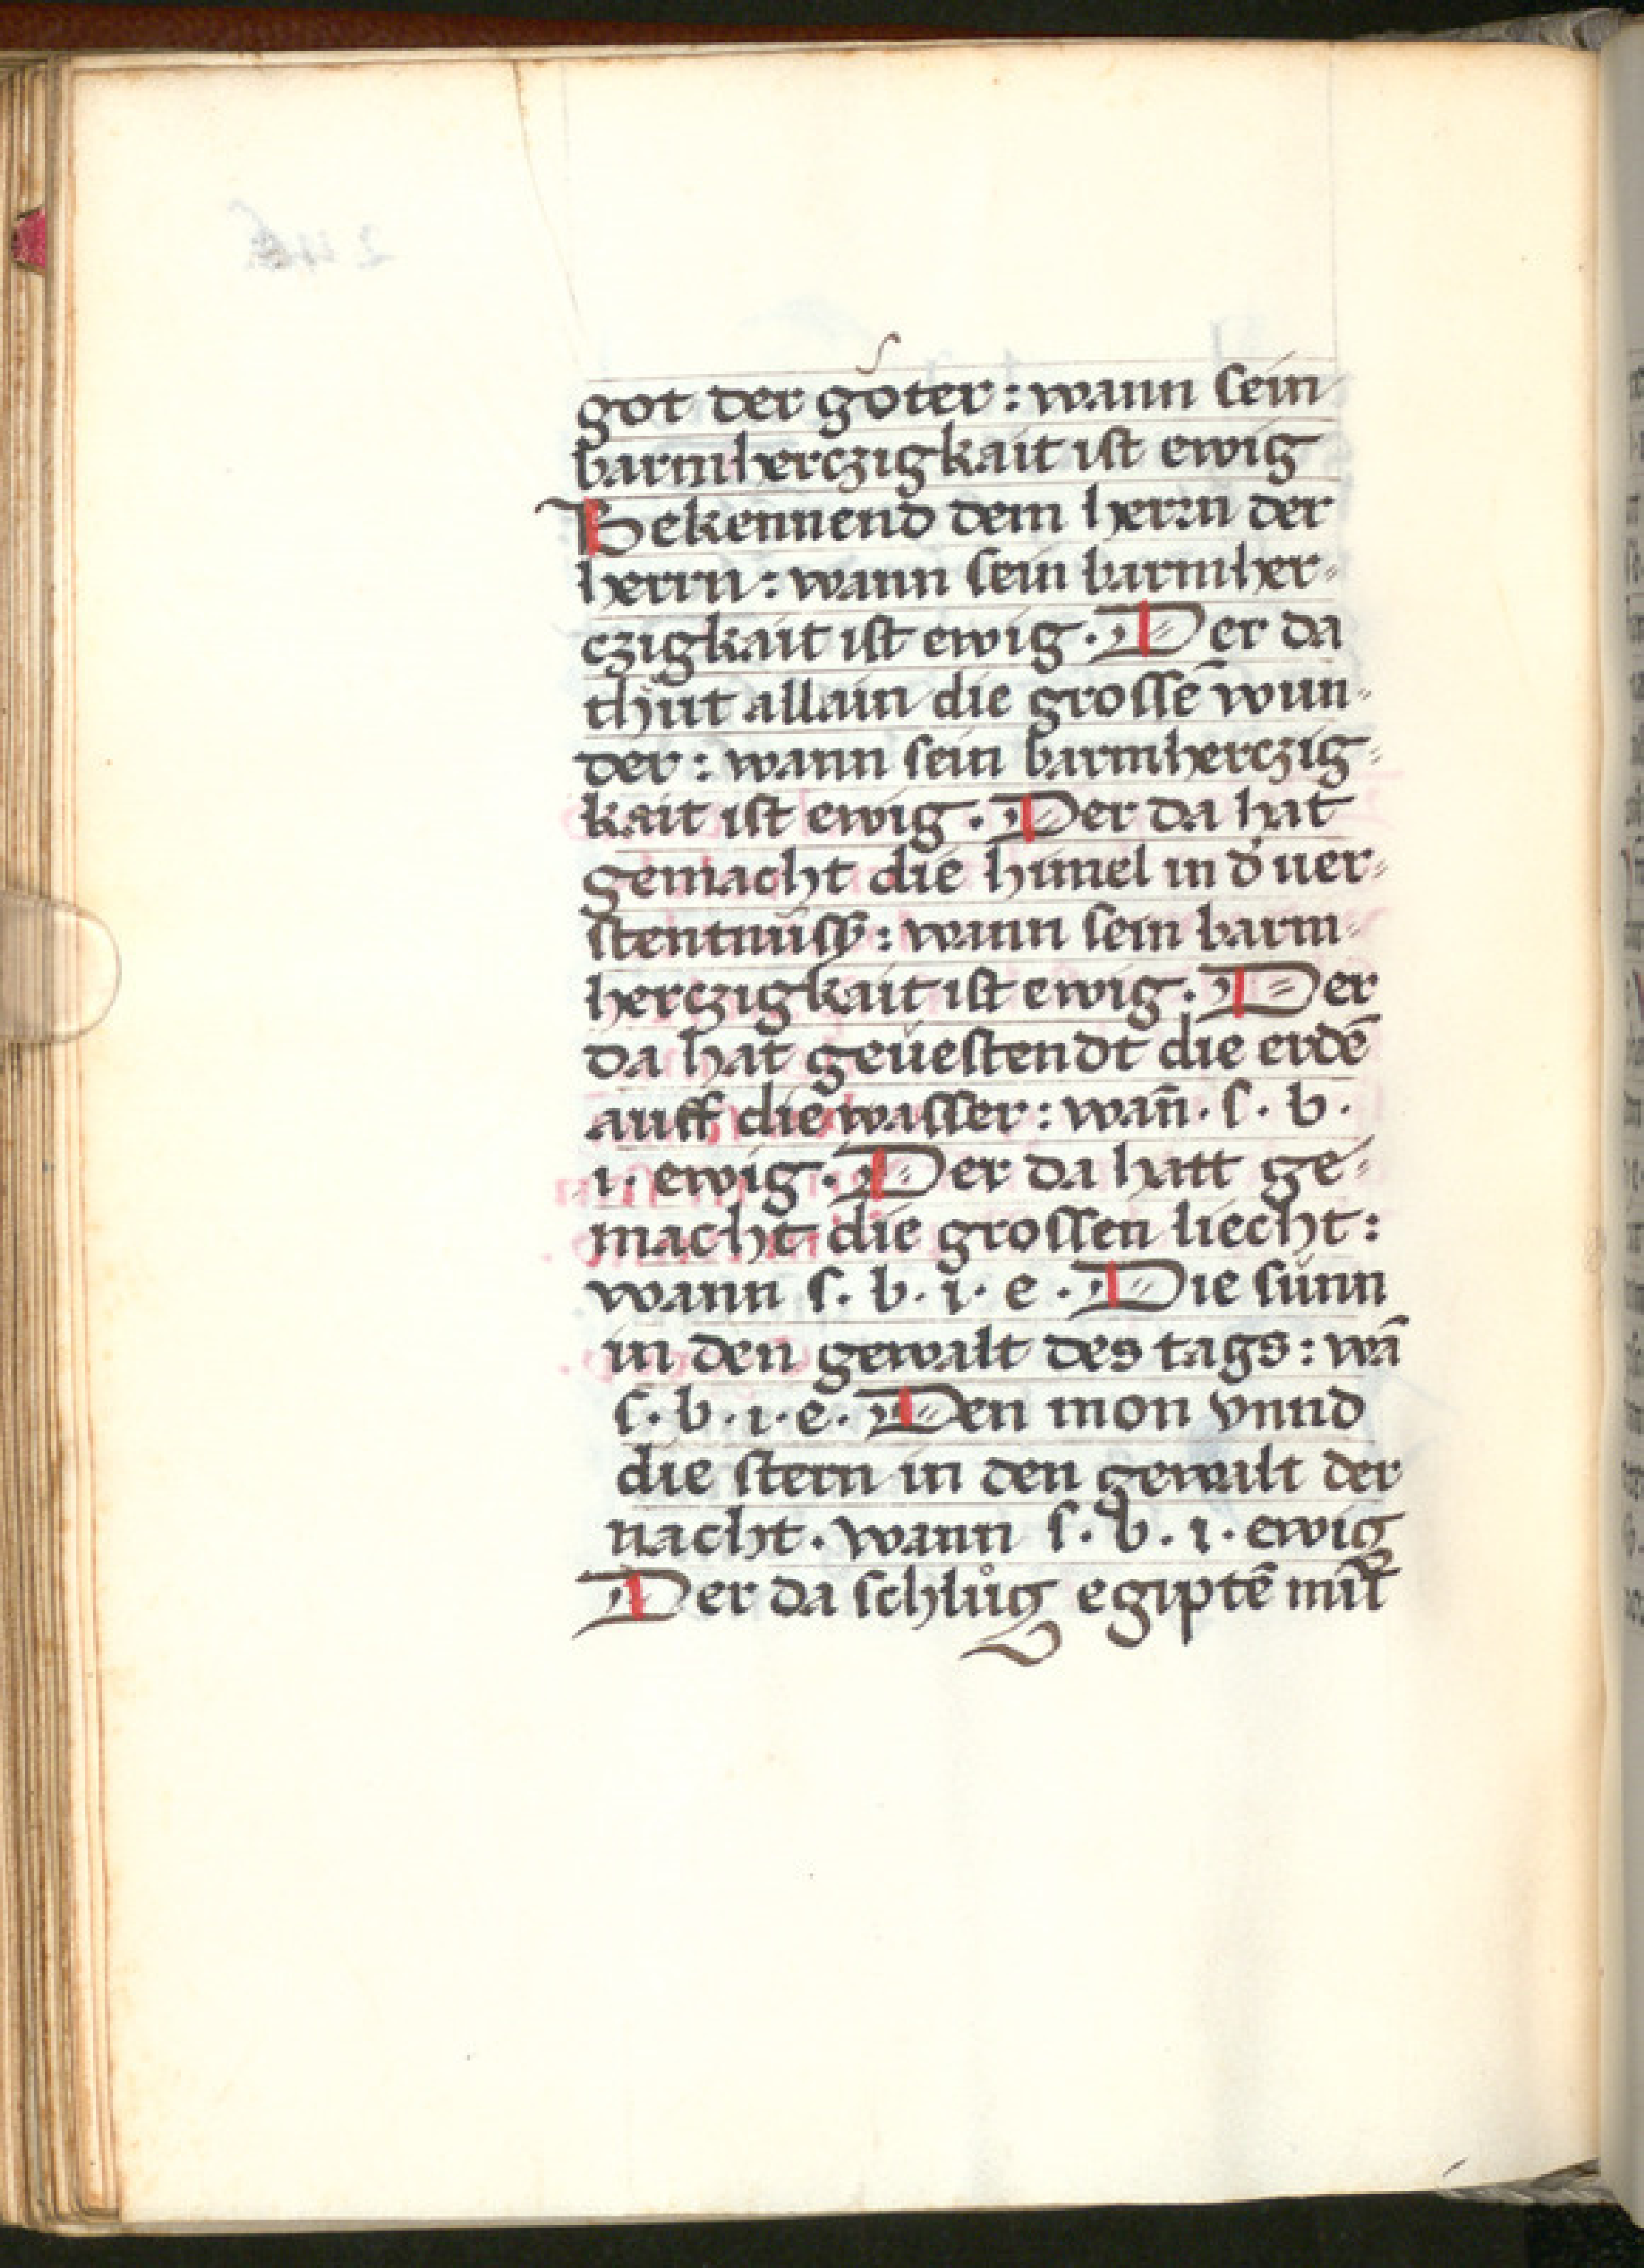 got der goͤter : wann sein
barmherczigkait ist ewig
Bekennend dem herrn der
herrn : wann sein barmher⸗
czigkait ist ewig · Der da
thuͤt allain die grossē wun⸗
der : wann sein barmherczig⸗
kait ist ewig · Der da hat
gemacht die himel in d' uer⸗
stentnuͤsß : wann sein barm⸗
herczigkait ist ewig · Der
da hat geuͤestendt die erdē
auff die wasser : wan̄ · s · b ·
i · ewig · Der da hatt ge⸗
macht die grossen liecht :
wann s · b · i · e · Die sunn
in den gewalt des tags : wā
s · b · i · e · Den mon vnnd
die stern in den gewalt der
nacht · wann s · b · i · ewig
Der da schluͦg egiptē mit